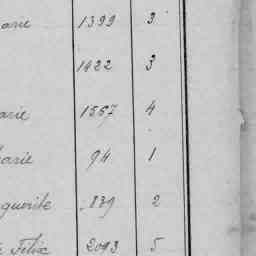 arie 1399 3
1422 3
arie 1567 4
arie 94 1
guerite 839 2
Félix 2093 5